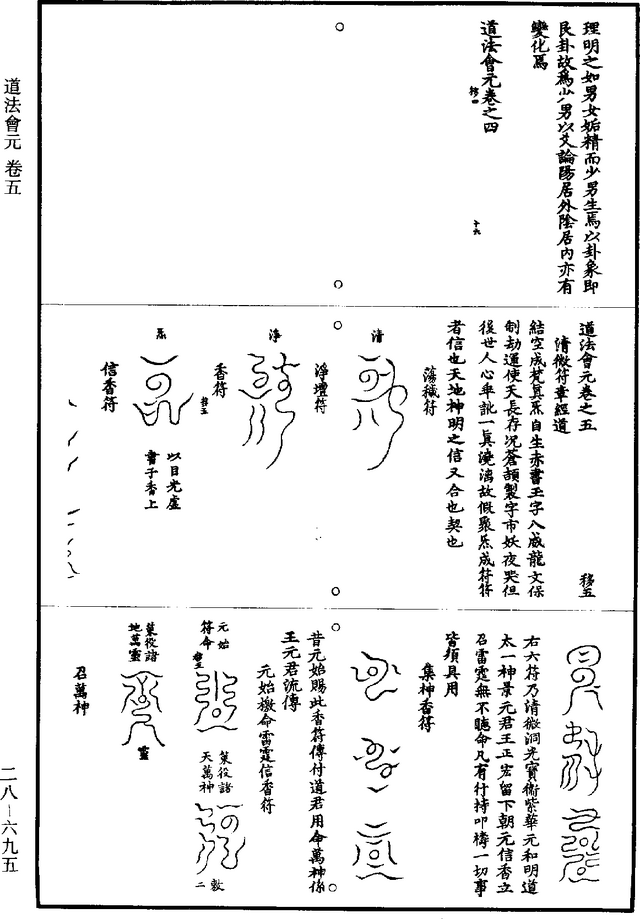 道法會元 卷五
理明之如男女姤精而少男生焉以卦象即
艮卦故爲少男以爻論陽居外陰居內亦有
變化焉
道法會元卷之四
移四
十九
道法會元卷之五
移五
清微符章經道
結空成梵真炁自生赤書玉字八威龍文保
制劫運使天長存況蒼頡製字市妖夜哭但
後世人心乖訛一真澆漓故假聚炁成符符
者信也天地神明之信又合也契也
蕩穢符
清
淨壇符
淨
香符
移五
炁
以目光虛
書于香上
信香符
右六符乃清微洞光寶衛紫華元和明道
太一神景元君王正宏留下朝元信香立
召雷霆無不聽命凡有行持叩禱一切事
皆須具用
集神香符
昔元始賜此香符傳付道君用命萬神係
王元君流傳
元始檄命雷霆信香符
元始
符命
移五
葉役諸
天萬神
敕
二
葉役諸
地萬靈
靈
召萬神
二八－六九五